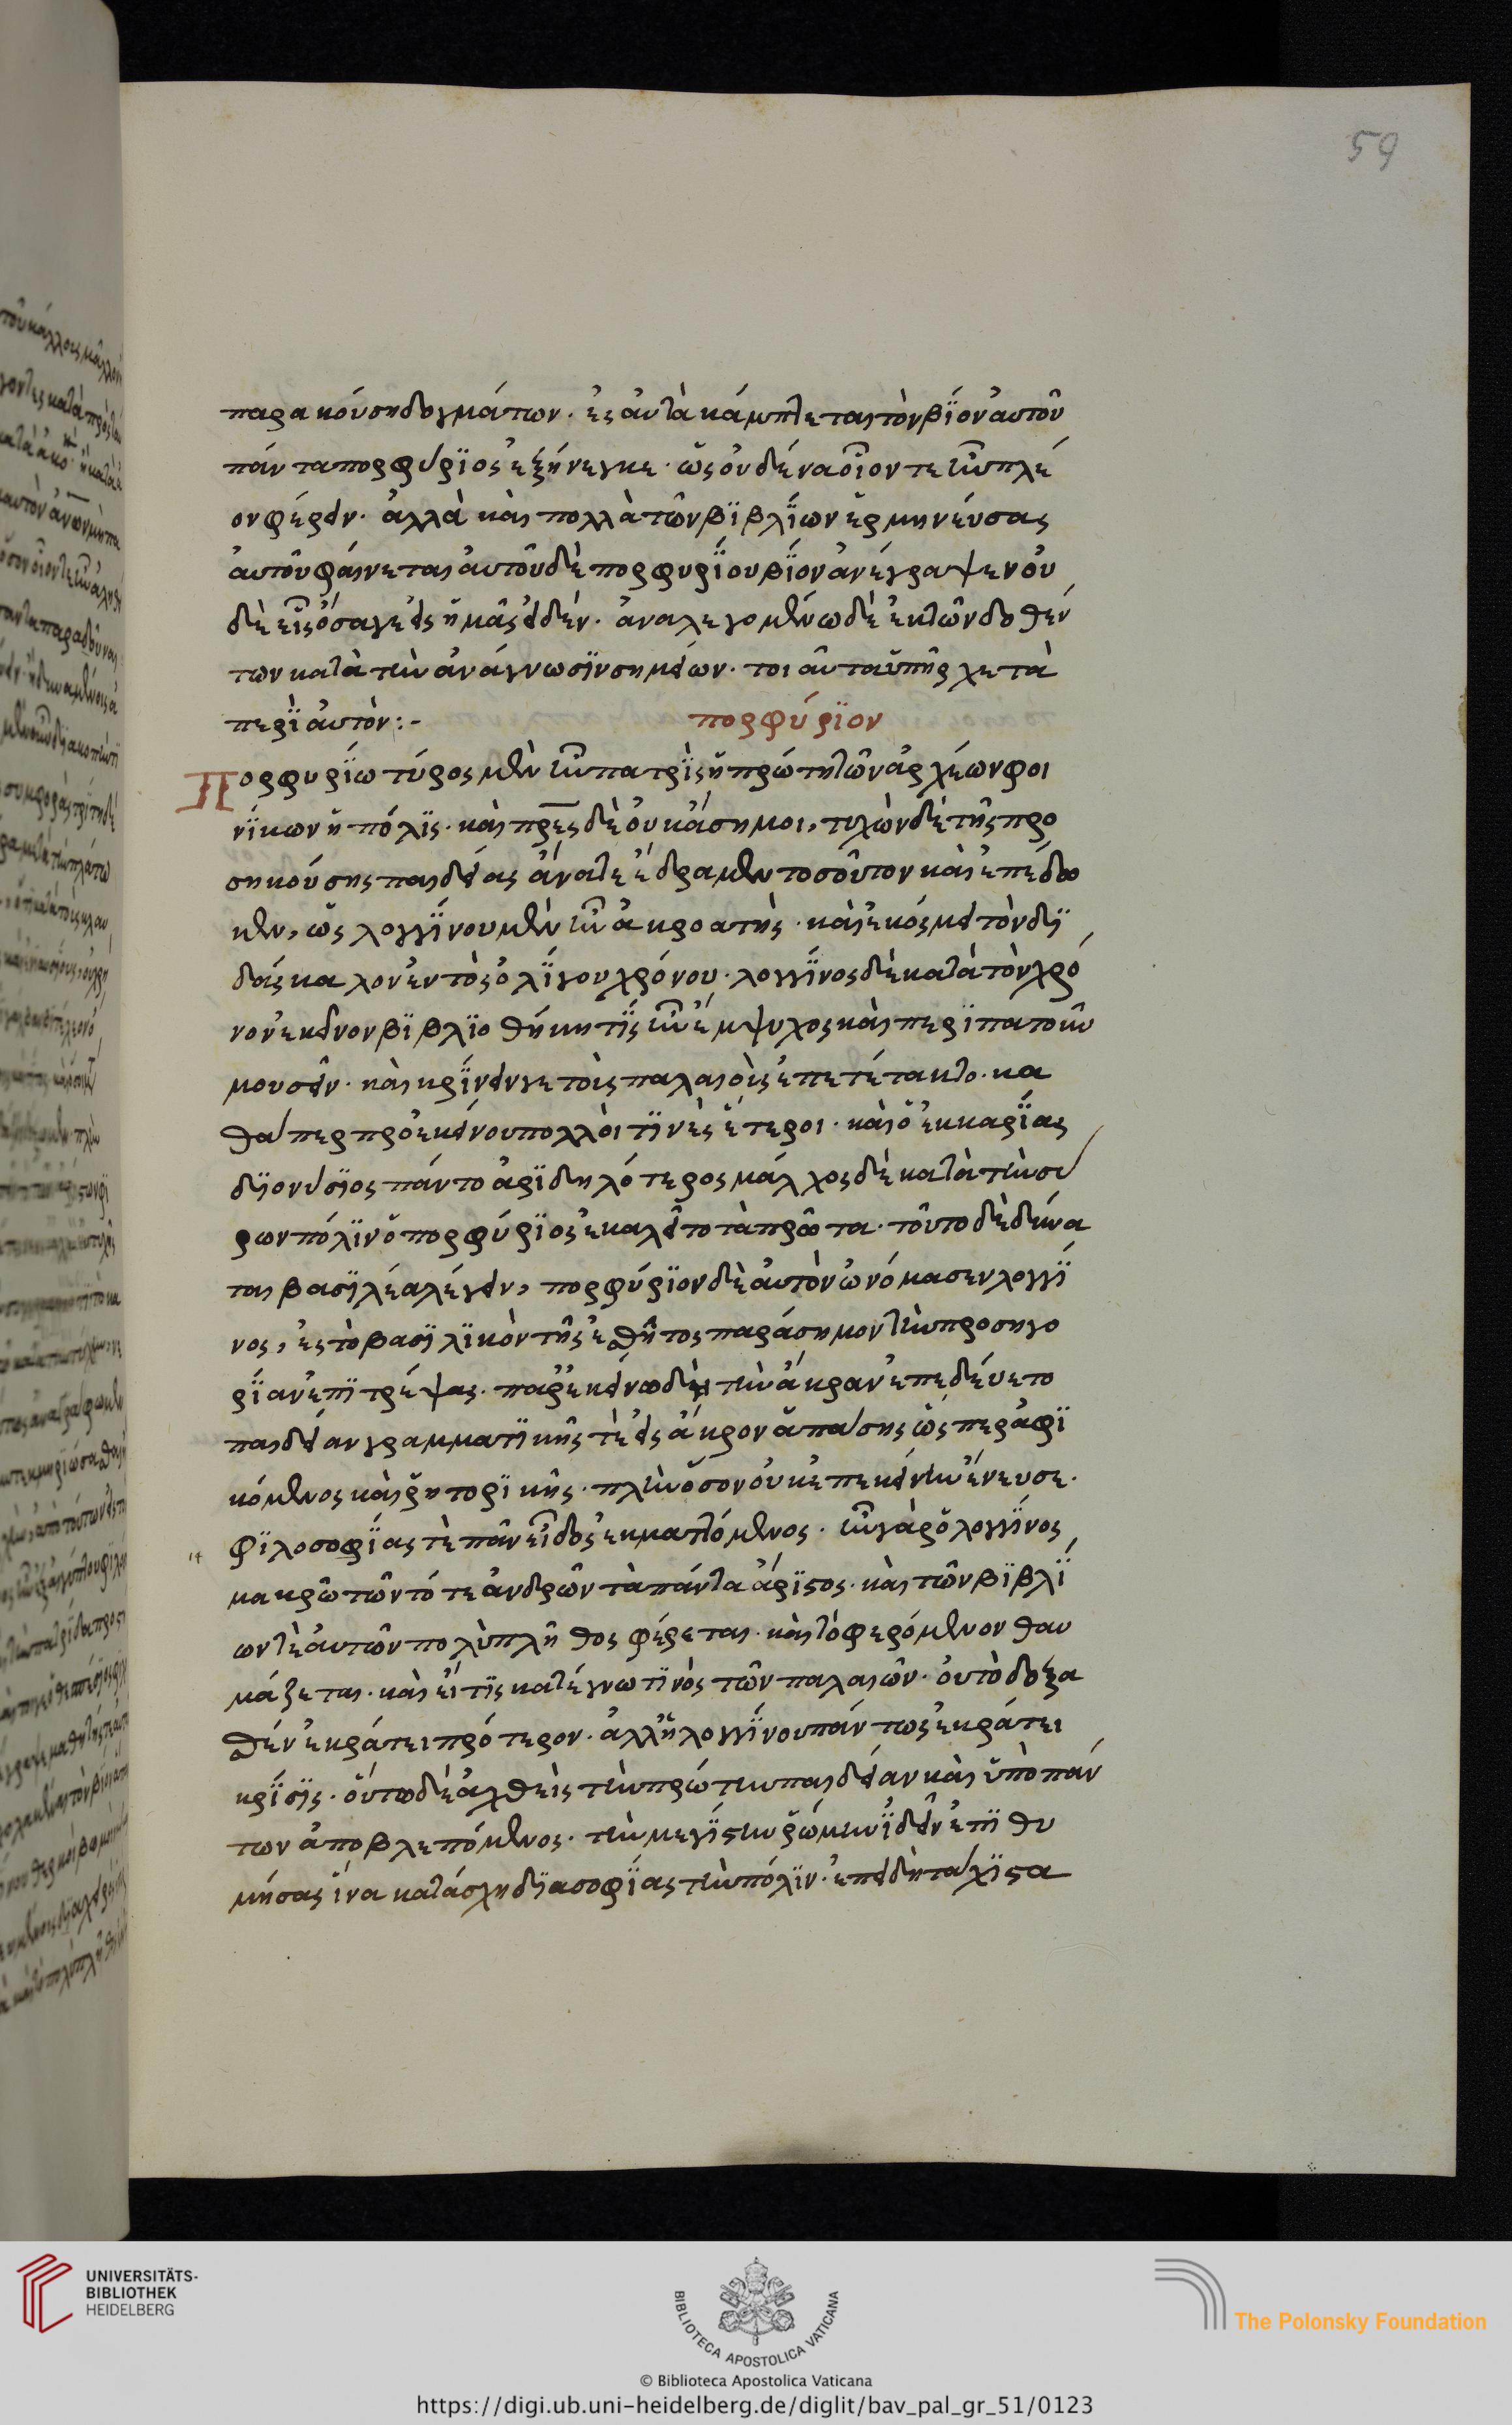 59
παρακούση δογμάτων. ἐς αὐτὰ κάμπτεται τὸν βΐον αὐτοῦ
πάντα πορφύρϊος ἐξήνεγκε. ὡς οὐδένα οἷον τε ἦν πλέ
ον φέρειν. ἀλλὰ καὶ πολλὰ τῶν βϊβλΐων ἑρμηνεύσας
ἀυτοῦ φαίνεται ἀυτοῦ δὲ πορφυρΐου βΐον ἀνέγραψεν ὀυ
δὲ εἷς ὅσα γε εἰς ἡμᾶς εἰδέν. ἀναλεγομένω δὲ ἐκ τῶν δοθέν
των κατὰ τὴν ἀνάγνωσϊν σημείων. τοιαῦτα ὑπῆρχε τὰ
περὶ ἀυτόν:-
πορφύρϊον
Πορφυρΐω τύρος μὲν ἦν πατρὶς ἡ πρώτη τῶν ἀρχέων φοι
νΐκων ἡ πόλϊς. καὶ πρες δὲ ὀυκ ἄσημοι, τυχὼν δὲ τῆς προ
σηκούσης παιδείας ἀνά τε ἔδραμεν τοσοῦτον καὶ ἐπέδω
κεν, ὡς λογγΐνου μὲν ἦν ἀκροατής. καὶ ἐκόσμει τὸν δϊ
δάσκαλον ἐντὸς ὀλΐγου χρόνου. λογγΐνος δὲ κατὰ τὸν χρό
νον ἐκεῖνον βϊβλϊοθήκη τϊς ἦν ἔμψυχος καὶ περϊπατοῦν
μουσεῖν. καὶ κρΐνειν γε τοὺς παλαιοὺς ἐπετέτακτο. κα
θάπερ πρὸ ἐκείνου πολλοὶ τϊνὲς ἕτεροι. καὶ ὁ ἐκ καρΐας
δϊονύσϊος πάντο ἀρϊδηλότερος μάλχος δὲ κατὰ τὴν σύ
ρων πόλϊν ὁ πορφύρϊος ἐκαλεῖτο τὰ πρῶτα. τοῦτο δὲ δύνα
ται βασϊλέα λέγειν, πορφύρϊον δὲ ἀυτὸν ὠνόμασεν λογγΐ
νος, ἐς τὸ βασϊλϊκὸν τῆς ἐσθῆτος παράσημον τὴν προσηγο
ρΐαν ἐπϊτρέψας. παρ' ἐκείνω δὲ τὴν ἄκραν ἐπεδεύετο
παιδείαν γραμματϊκῆς τὲ εἰς ἄκρον ἁπάσης ὥσπερ ἀφϊ
κόμενος καὶ ῥητορϊκῆς. πλὴν ὅσον ὀυκ ἐπ' ἐκείνην ἔνευσε.
φϊλοσοφΐας τὲ πᾶν εἶδος ἐκματτόμενος. ἦν γὰρ ὁ λογγΐνος
μακρῶ τῶν τότε ἀνδρῶν τὰ πάντα ἄρϊστος. καὶ τῶν βϊβλΐ
ων τὲ ἀυτῶν πολὺ πλῆθος φέρεται. καὶ τὸ φερόμενον θαυ
μάζεται. καὶ εἴ τϊς κατέγνω τϊνὸς τῶν παλαιῶν. ὀυ τὸ δοξα
σθὲν ἐκράτει πρότερον. ἀλλ' ἡ λογγΐνου πάντως ἐκράτει
κρΐσϊς. οὕτω δὲ ἀχθεὶς τὴν πρώτην παιδείαν καὶ ὑπὸ πάν
των ἀποβλεπόμενος. τὴν μεγΐστην ῥώμην ϊδεῖν ἐπϊθυ
μήσας ἵνα κατάσχη δϊα σοφΐας τὴν πόλϊν. ἐπειδὴ τάχϊστα
UNIVERSITÄTS-
BIBLIOTHEK
HEIDELBERG
BIBLIOTECA APOSTOLICA VATICANA
The Polonsky Foundation
© Biblioteca Apostolica Vaticana
https://digi.ub.uni-heidelberg.de/diglit/bav_pal_gr_51/0123